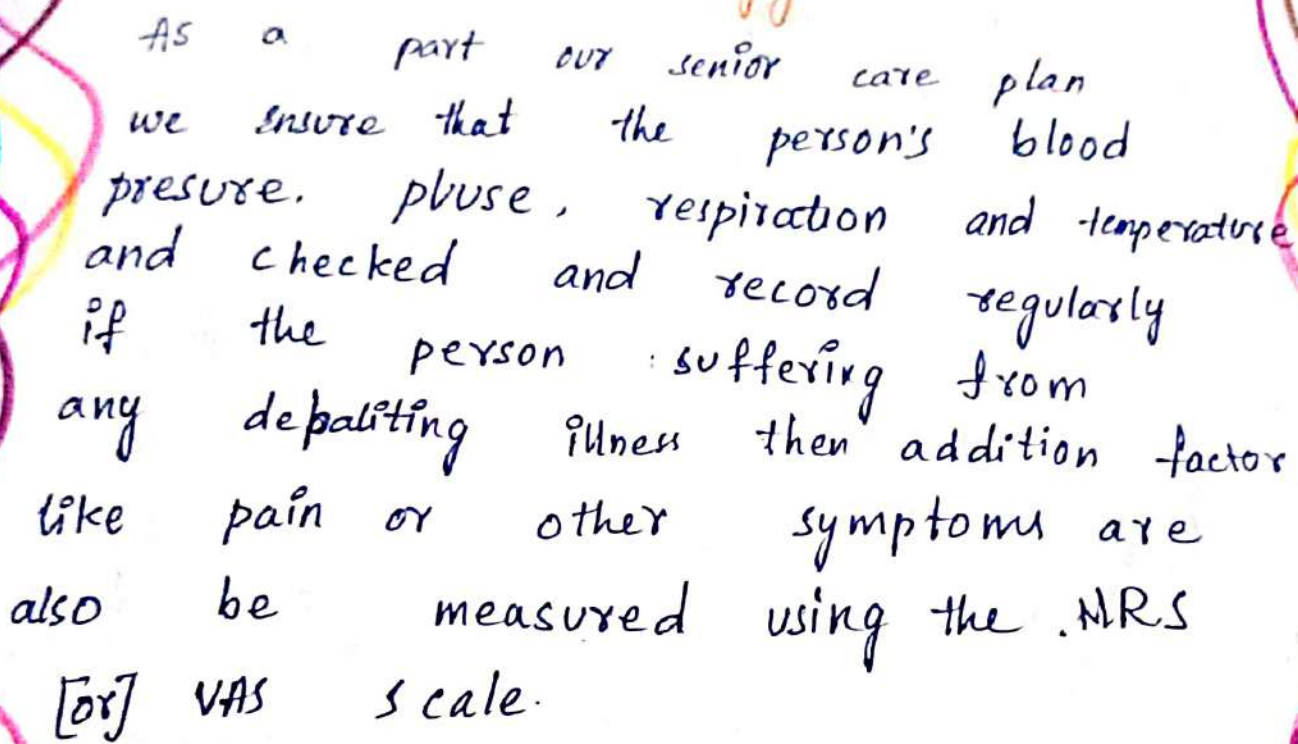 As a part our senior care plan
we ensure that the person's blood
presure. pluse, respiration and temperature
and checked and record regularly
if the person suffering from
any debaliting illness then addition factor
like pain or other symptoms are
also be measured using the NRS
[or] VAS scale.